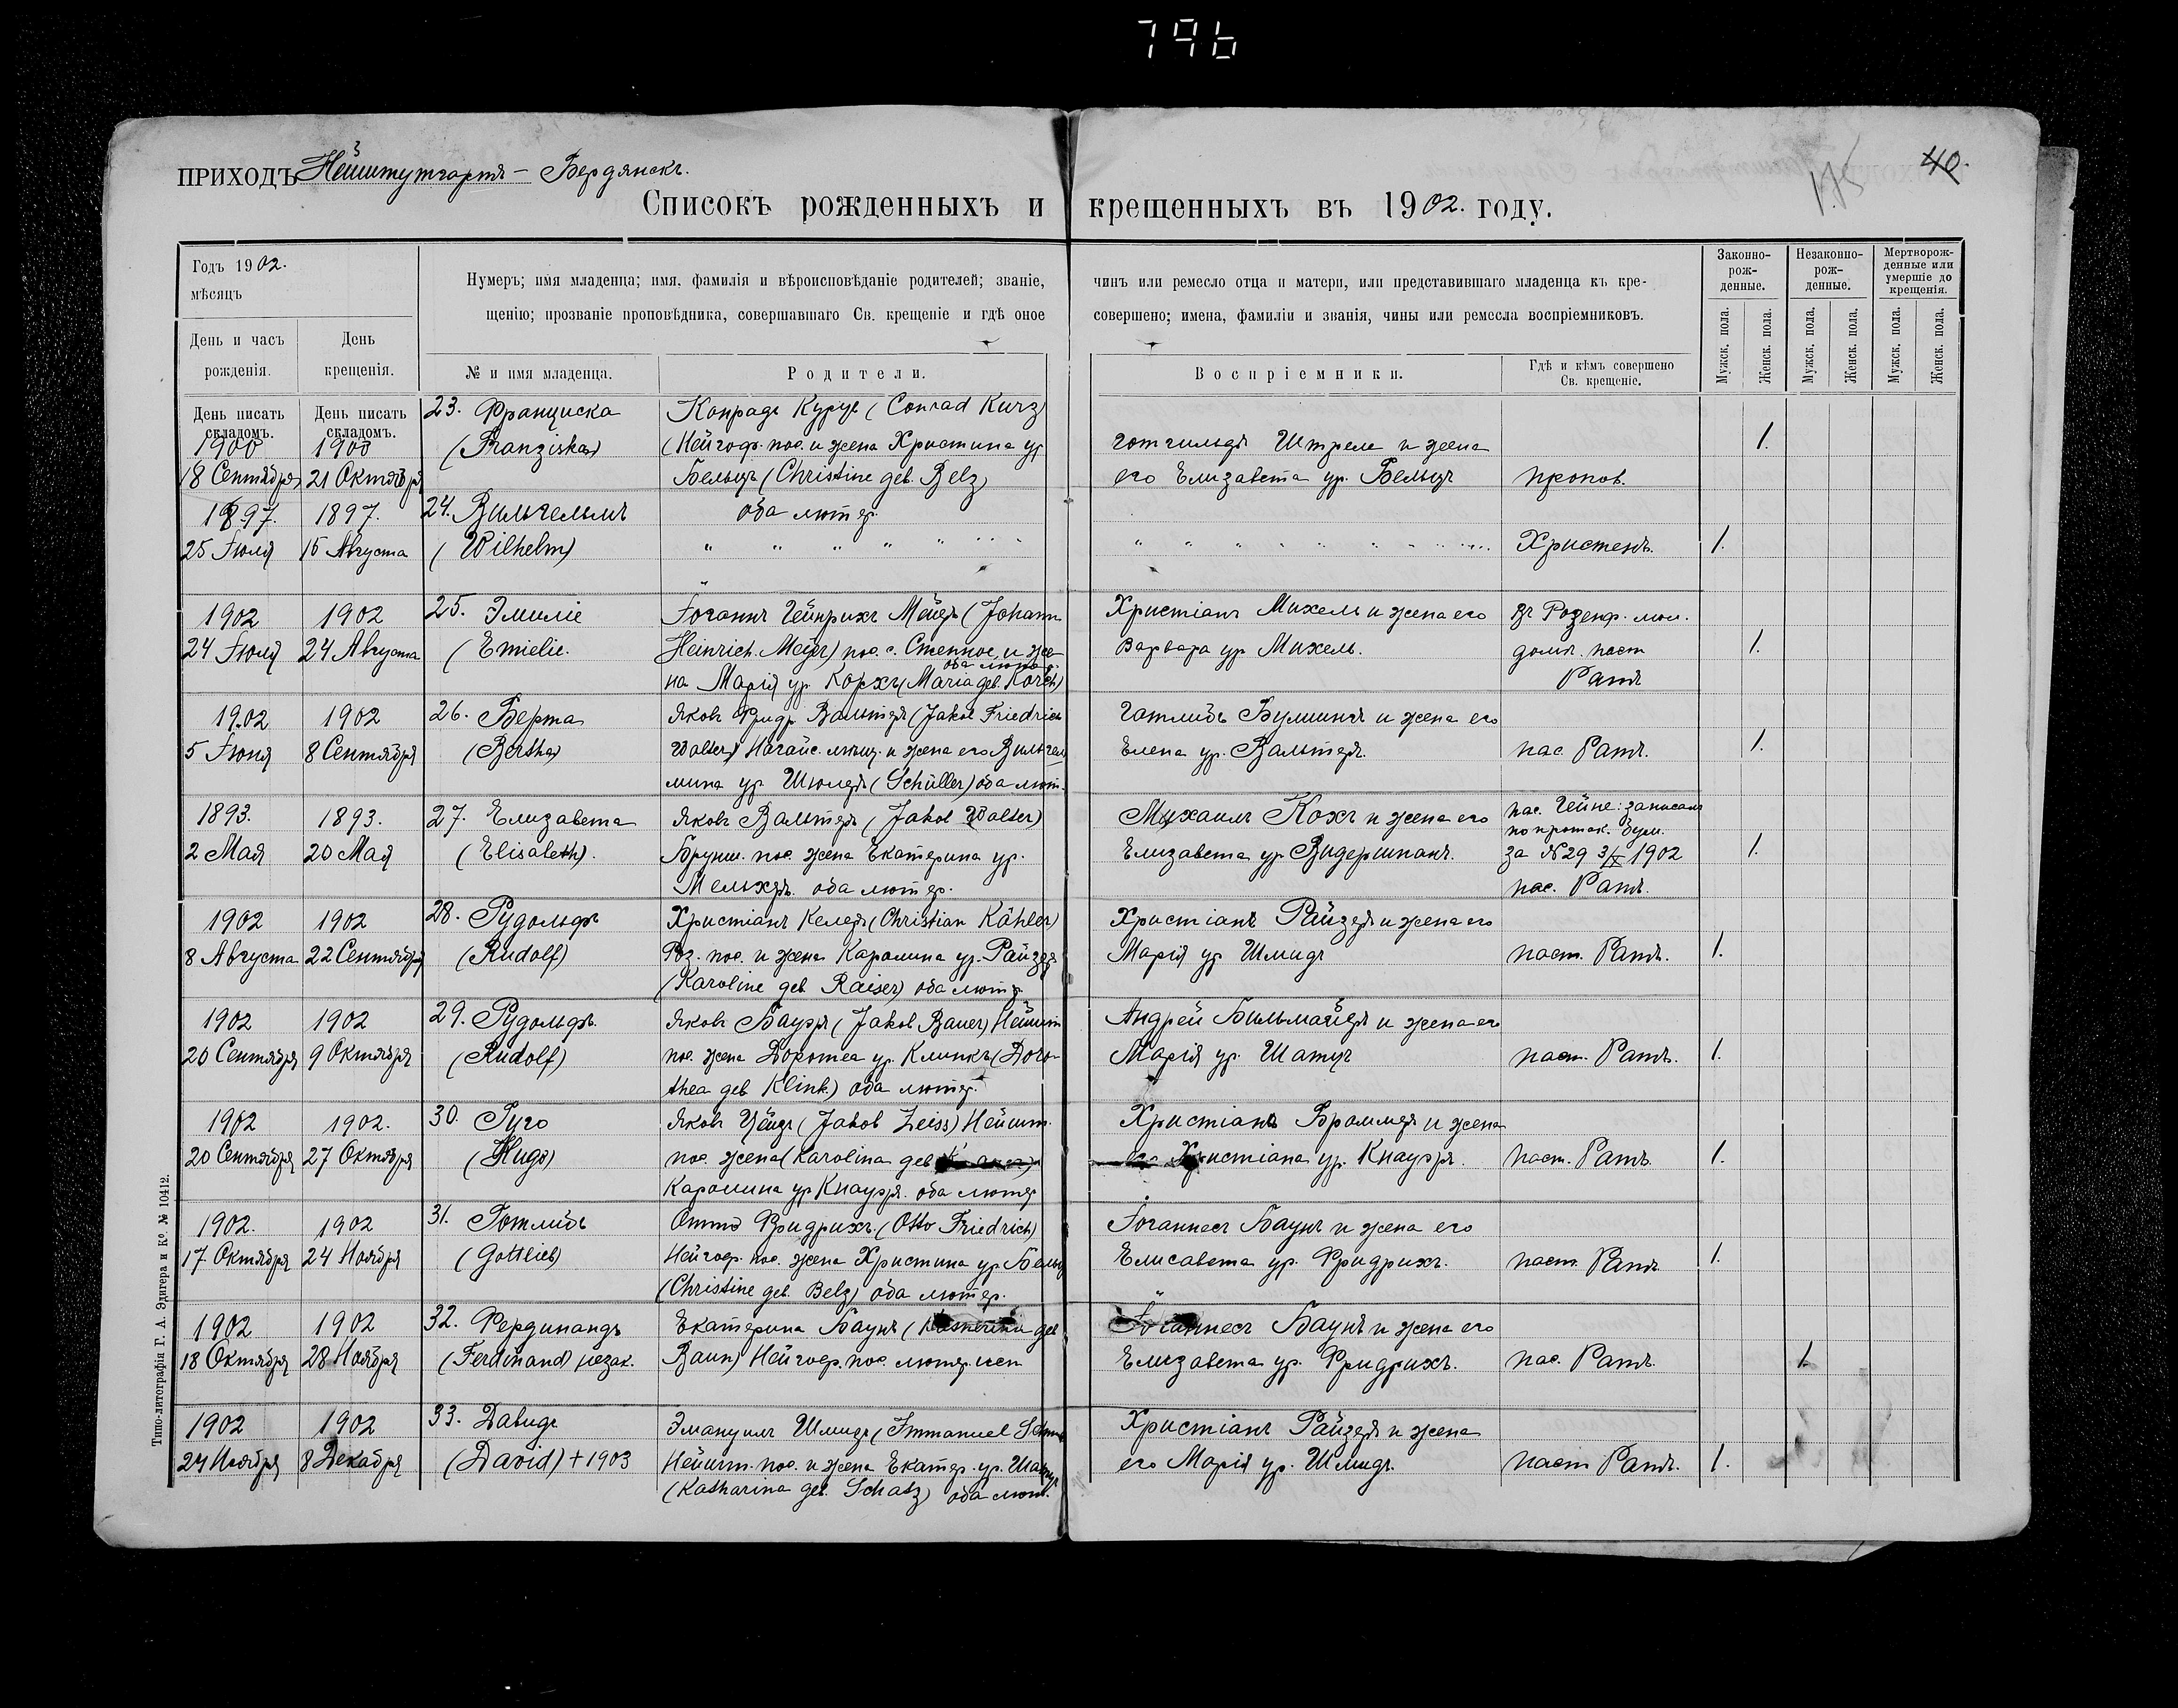 796
ПРИХОДЪ Нейштутгартъ – Бердянскъ.
40.
175
Списокъ рожденныхъ и крещенныхъ въ 1902. году.
Годъ 1902.
мѣсяцъ
День и часъ рожденія.
День крещенія.
Нумеръ; имя младенца; имя, фамилія и вѣроисповѣданіе родителей; званіе, чинъ или ремесло отца и матери, или представившаго младенца къ кре-
щенію; прозваніе проповѣдника, совершавшаго Св. крещеніе и гдѣ оное совершено; имена, фамиліи и званія, чины или ремесла воспріемниковъ.
№ и имя младенца.
Родители.
Воспріемники.
Гдѣ и кѣмъ совершено Св. крещеніе.
Законно-рож-денные.
Незаконно-рож-денные.
Мертворож-денные или умершіе до крещенія.
Мужск. пола. Женск. пола. Мужск. пола. Женск. пола. Мужск. пола. Женск. пола.
День писать складомъ. День писать складомъ.
23. Франциска Конрадъ Курцъ (Conrad Kurz)
1900 1900 (Franziska) (Нейгоф. пос. и жена Христина ур Готгильдъ Штреле и жена 1.
18 Сентября 21 Октября Бельцъ (Christine geb. Belz) его Елизавета ур. Бельцъ пропов.
1897. 1897. 24. Вильгельмъ оба лютер.
25 Іюля 15 Августа (Wilhelm) " " " " " " " " " " Христенъ. 1.
1902 1902 25. Эмиліе Іоганнъ Гейнрихъ Мейеръ (Johann Христіанъ Михель и жена его въ Розенф. мол.
24 Іюля 24 Августа (Emielie. Heinrich Meyer) пос. с. Степное, и же- Варвара ур Михель. домѣ. паст 1.
оба лютер.
на Марія ур. Корхъ (Maria geb. Korch) Ратъ
1902 1902 26. Берта Яковъ Фридр Вальтеръ (Jakob Friedrich Готлибъ Булингъ и жена его
5 Іюня 8 Сентября (Bertha) Walter) Ногайс. мѣщ. и жена его Вильгель Елена ур. Вальтеръ. пас. Ратъ. 1.
мина ур Шюлеръ (Schüller) оба лют.
1893. 1893. 27. Елизавета Яковъ Вальтеръ (Jakob Walter) Михаилъ Кохъ и жена его пас. Гейне: записанъ
по проток.
2 Мая 20 Мая (Elisabeth). Брунш. пос. жена Екатерина ур. Елизавета ур Видершпанъ. за №29 3/X 1902 1.
Мельхеръ. оба лютер. пас. Ратъ.
1902 1902 28. Рудольфъ Христіанъ Келеръ (Christian Kähler) Христіанъ Райзеръ и жена его
8 Августа 22 Сентября (Rudolf) Роз. пос. и жена Каролина ур. Райзеръ Марія ур Шмидъ паст. Ратъ. 1.
(Karoline geb. Raiser) оба лютер
1902 1902 29. Рудольфъ. Яковъ Бауэръ (Jakob Bauer) Нейшт Андрей Бильмайеръ и жена его
20 Сентября 9 Октября (Rudolf) пос. жена Доротеа ур. Клинкъ (Doro- Марія ур. Шатцъ паст. Ратъ. 1.
thea geb Klink.) оба лютер.
1902 1902. 30. Гуго Яковъ Цейсъ (Jakob Zeiss) Нейшт. Христіанъ Браммеръ и жена
20 Сентября 27 Октября (Hugo) пос. жена (Karolina geb его Христіана ур. Кнауэръ. паст. Ратъ. 1.
Каролина ур Кнауэръ. оба лютер
1902. 1902 31. Готлибъ Отто Фридрихъ (Otto Friedrich) Іоганнесъ Баунъ и жена его
17 Октября 24 Ноября (Gottlieb) Нейгоф. пос. жена Христина ур. Бельцъ Елисавета ур. Фридрихъ. паст. Ратъ 1.
(Christine geb. Belz) оба лютер.
1902 1902 32. Фердинандъ Екатерина Баунъ (Katherina geb Іоганнесъ Баунъ и жена его
18 Октября 28 Ноября (Ferdinand) незак. Baun) Нейгоф. пос. лютер. исп Елизавета ур. Фридрихъ. пас. Ратъ. 1.
1902 1902 33. Давидъ Эмануилъ Шмидъ (Immanuel Schmid Христіанъ Райзеръ и жена
24 Ноября 8 Декабря (David) + 1903 Нейшт. пос. и жена Екатер. ур. Шатцъ его Марія ур. Шмидъ. паст Ратъ. 1.
(Katharina geb. Schatz) оба лют.
Типо-литографія Г. А. Эдигера и Ко. № 10412.